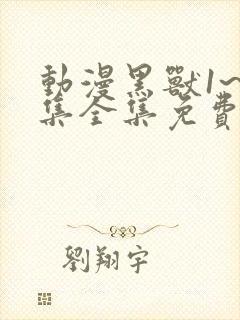 動漫黑獸1~
集全集免費
劉翔宇